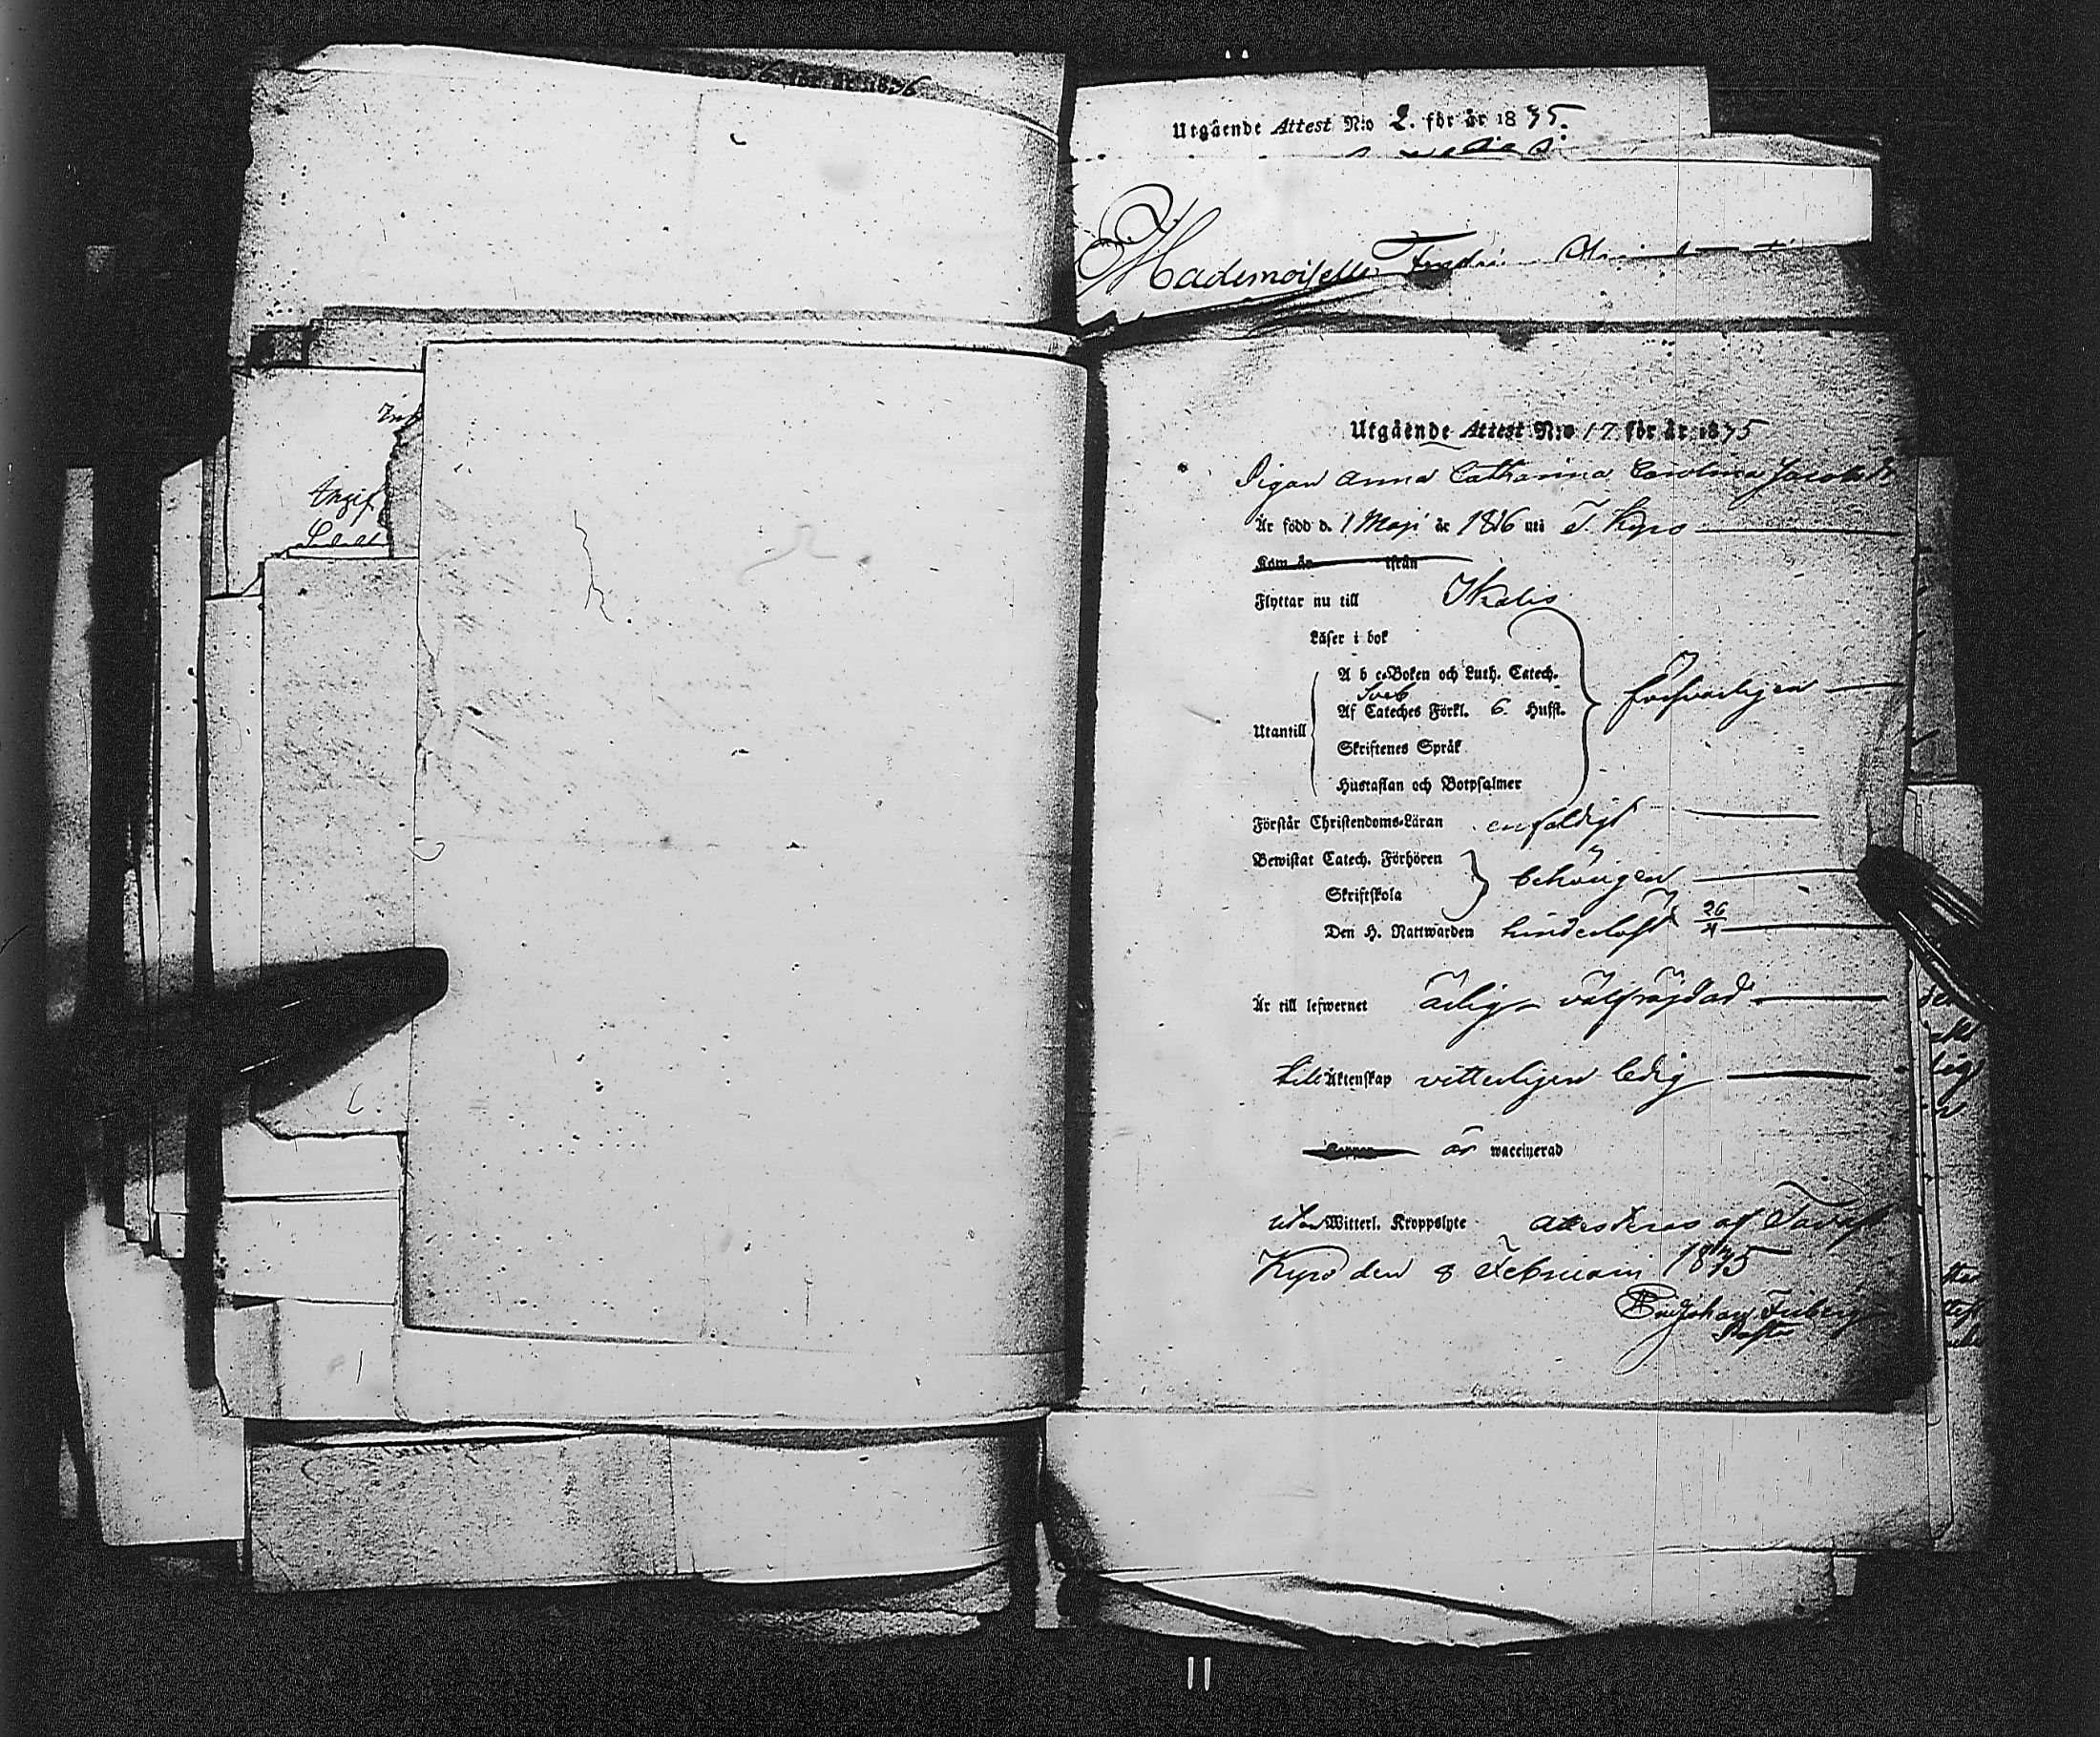 för år 1836
Utgående Attest N:o 2. för år 1835.
Mademoiselle Fredri
Utgående Attest N:o 17 för år 1835
Pigan Anna Catharina Carolina Jacobsdr
Är född d. 1 Maji år 1816 uti T. Kyro
Kom år ifrån
Flyttar nu till Ikalis
Läser i bok
A b c-Boken och Luth. Catech.
Sveb
Af Cateches Förkl. 6. Hufst.
försvarligen
Utantill
Skriftenes Språk
Hustaflan och Botpsalmer
Förstår Christendoms-Läran enfaldigt
Bewistat Catech. Förhören
behörigen
Skriftskola
Den H. Nattwarden hinderlöst 26/4
Är till lefwernet ärlig välfrägdad
till Äktenskap vitterligen ledig
är waccinerad
utan Witterl. Kroppslyte attesteras af Tavast
Kyro den 8 Februarii 1835